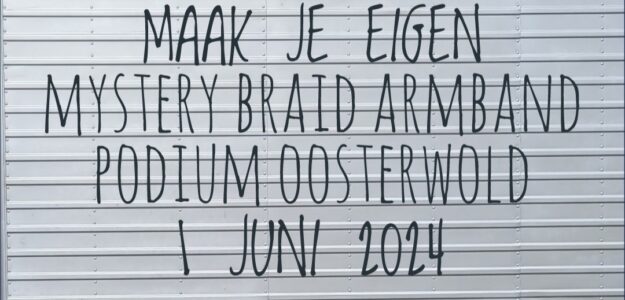 MAAK JE EIGEN
MYSTERY BRAID ARMBAND
PODIUM OOSTERWOLD
1 JUNI 2024